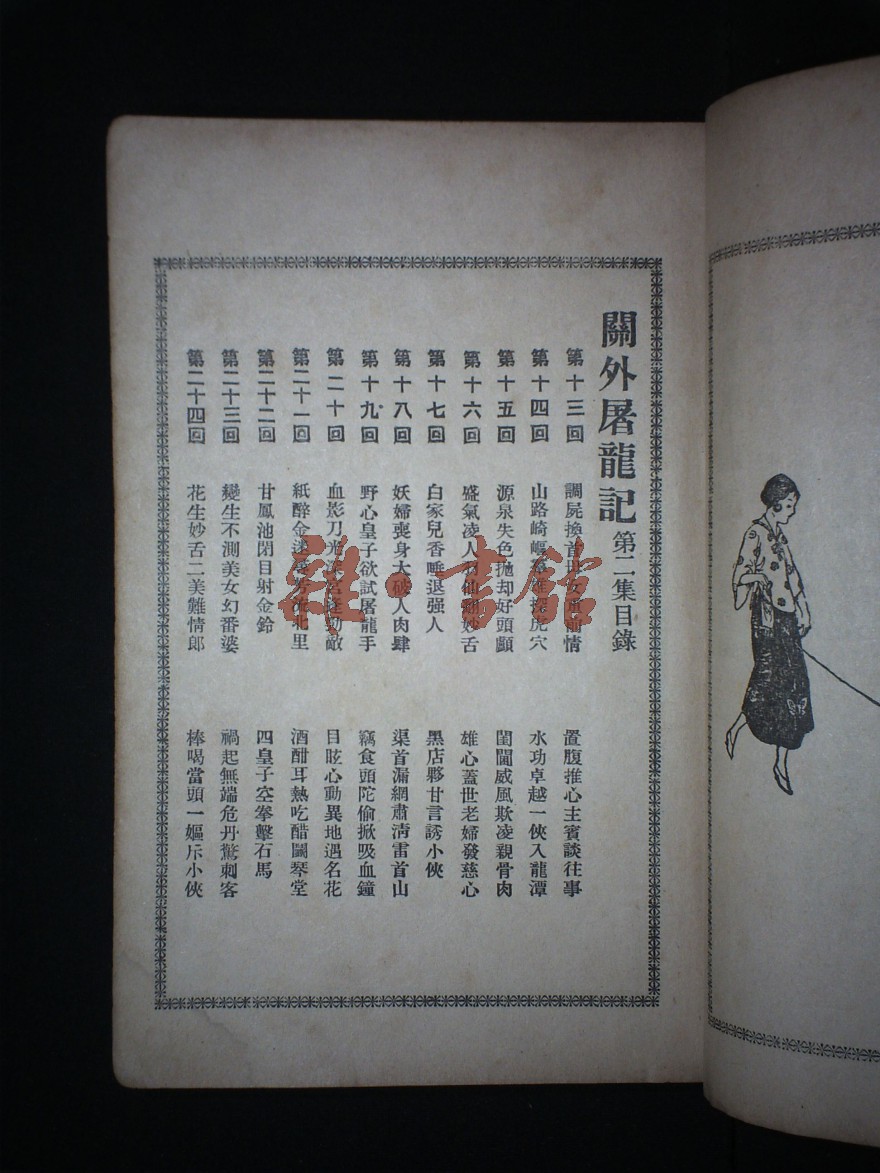 關外屠龍記 第二集目錄
第十三回 調屍換首 置腹推心主賓談往事
第十四回 山路崎嶇 虎穴 水功卓越一俠入龍潭
第十五回 源泉失色拋却好頭顱 閨闥威風欺凌親骨肉
第十六回 盛氣凌人 妙舌 雄心蓋世老婦發慈心
第十七回 白家兒香唾退强人 黑店夥甘言誘小俠
第十八回 妖婦喪身大破人肉肆 渠首漏網肅清雷首山
第十九回 野心皇子欲試屠龍手 竊食頭陀偷掀吸血鐘
第二十回 血影刀光 敵 目眩心動異地遇名花
第二十一回 紙醉金迷 北里 酒酣耳熱吃醋鬧琴堂
第二十二回 甘鳳池閉目射金鈴 四皇子空拳擊石馬
第二十三回 變生不測美女幻番婆 禍起無端危丹驚刺客
第二十四回 花生妙舌二美難情郎 棒喝當頭一嫗斥小俠
雜·書館